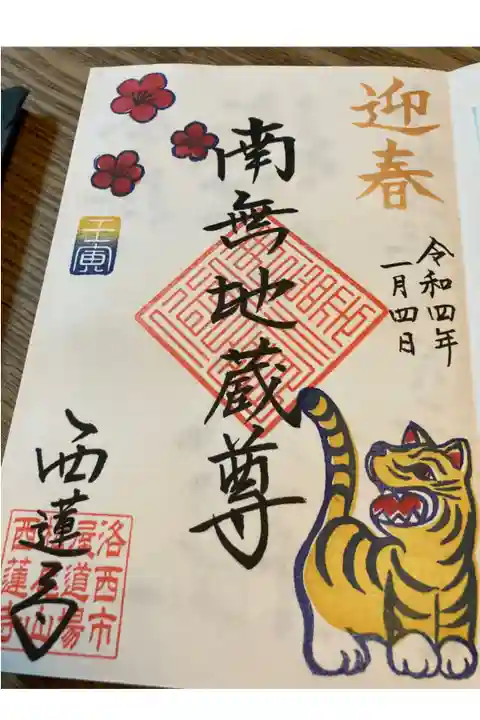 迎春
令和四年
一月四日
南無地蔵尊
壬寅
西蓮寺
洛西市
屋道場
西蓮寺